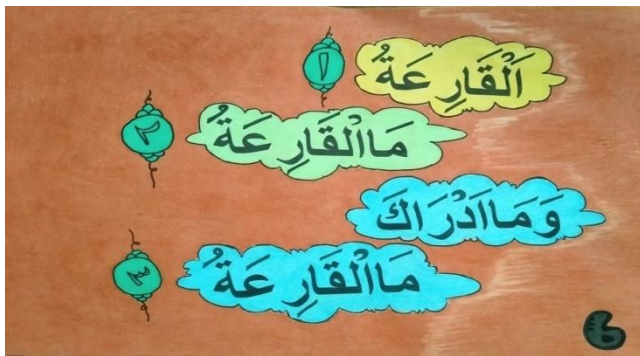 اَلْقَارِعَةُ ١
مَاالْقَارِعَةُ ٢
وَمَااَدْرَاكَ
مَاالْقَارِعَةُ ٣